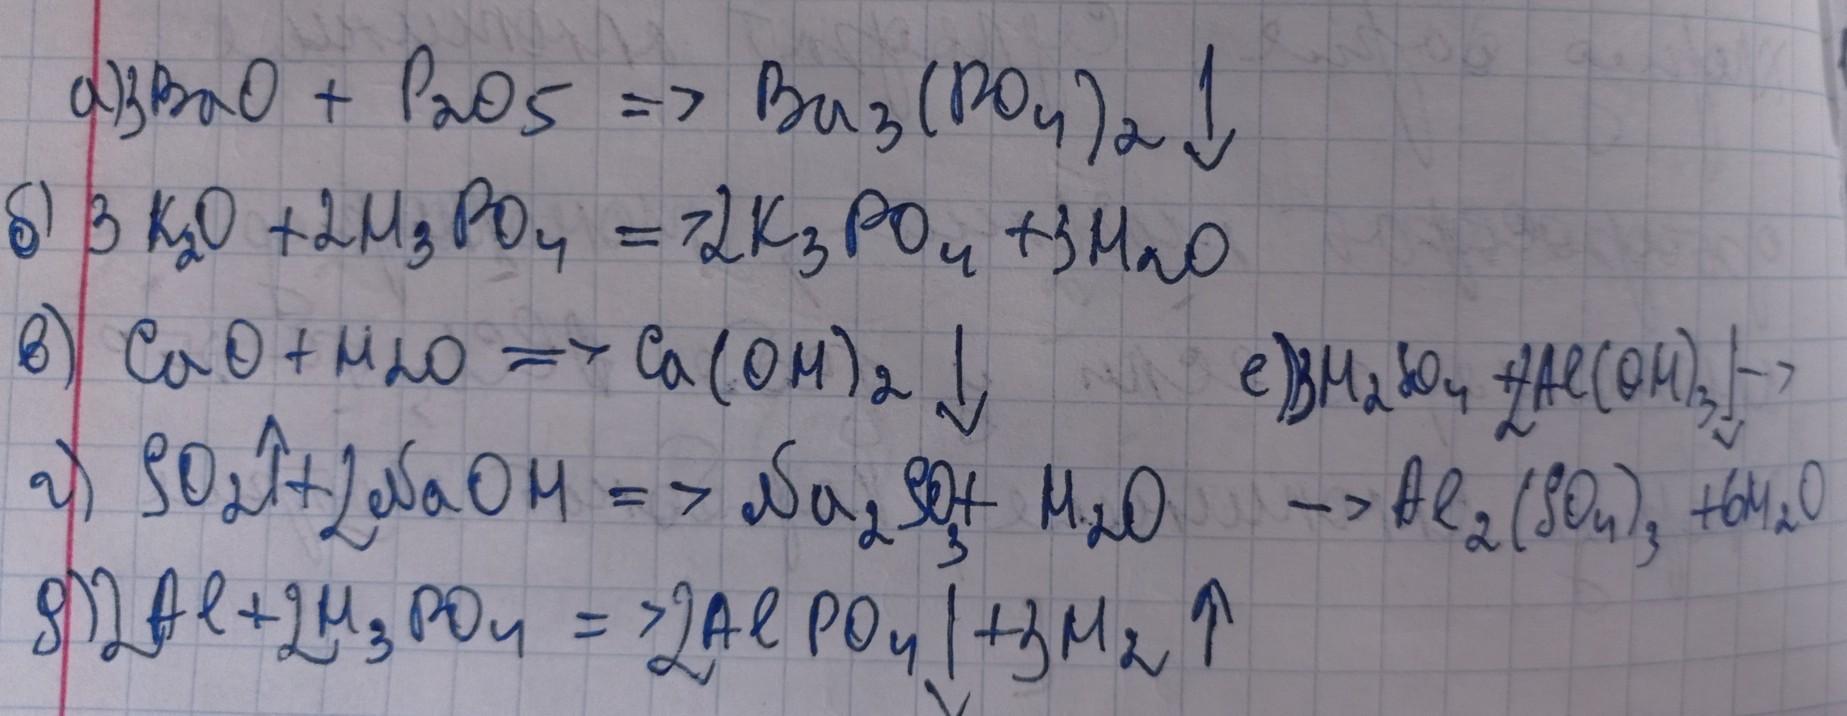 а) 3BaO + P2O5 => Ba3(PO4)2 ↓
б) 3 K2O + 2H3PO4 => 2K3PO4 + 3H2O
в) CaO + H2O => Ca(OH)2 ↓
г) SO2↑ + 2NaOH => Na2SO3 + H2O
д) 2Al + 2H3PO4 => 2AlPO4↓ + 3H2↑
е) 3H2SO4 + 2Al(OH)3↓ ->
-> Al2(SO4)3 + 6H2O